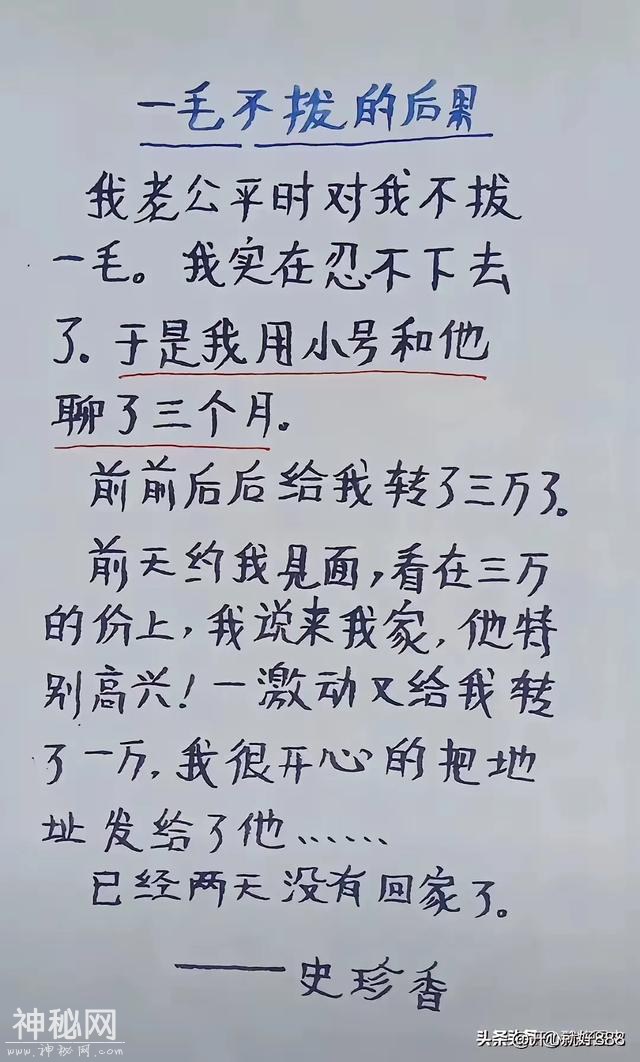 一毛不拨的后果
我老公平时对我不拨
一毛。我实在忍不下去
了.于是我用小号和他
聊了三个月。
前前后后给我转了三万了。
前天约我见面,看在三万
的份上,我说来我家,他特
别高兴!一激动又给我转
了一万,我很开心的把地
址发给了他……
已经两天没有回家了。
——史珍香
神秘网
www.shenmw.com
头条 @开心就好888